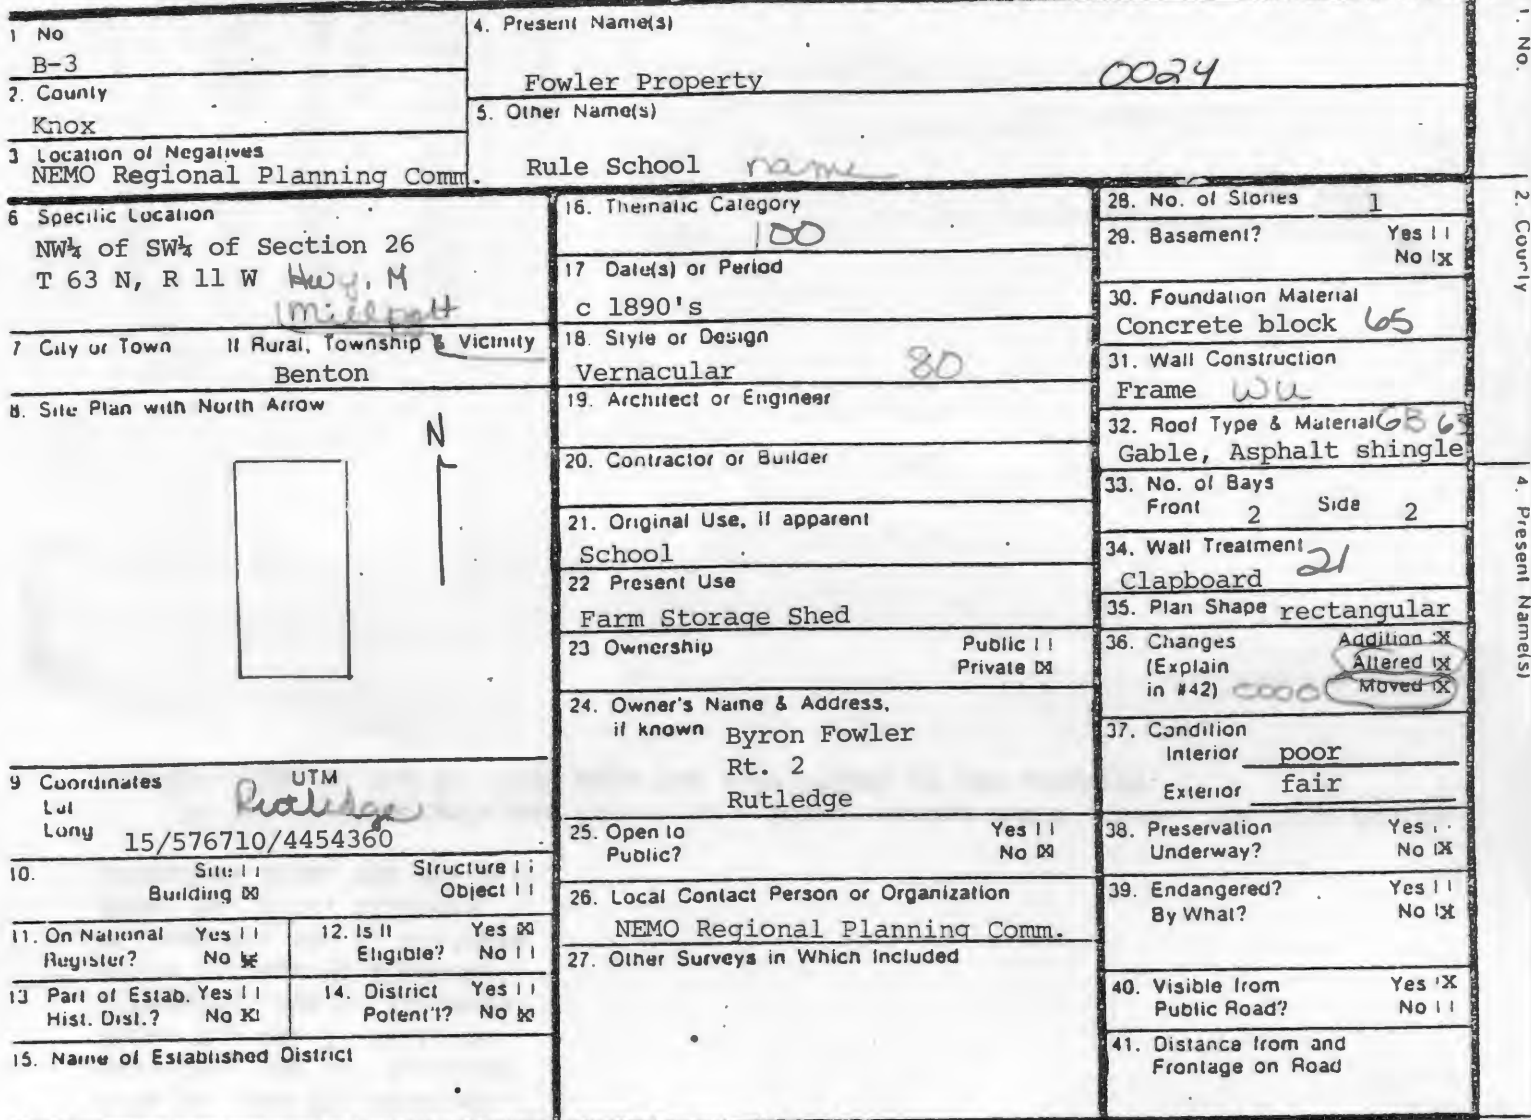 1 No
B-3
2. County
Knox
3 Location of Negatives
NEMO Regional Planning Comm.
4. Present Name(s)
Fowler Property
0024
5. Other Name(s)
Rule School name
6 Specific Location
NW¼ of SW¼ of Section 26
T 63 N, R 11 W Hwy. M
7 City or Town If Rural, Township & Vicinity
Benton
8. Site Plan with North Arrow
N
9 Coordinates UTM
Lat Rutledge
Long 15/576710/4454360
10. Site | | Structure | |
Building |X| Object | |
11. On National Yes | |
Register? No |X|
12. Is It Yes |X|
Eligible? No | |
13 Part of Estab. Yes | |
Hist. Dist.? No |X|
14. District Yes | |
Potent'l? No |X|
15. Name of Established District
16. Thematic Category
100
17 Date(s) or Period
c 1890's
18. Style or Design
Vernacular 80
19. Architect or Engineer
20. Contractor or Builder
21. Original Use, if apparent
School
22 Present Use
Farm Storage Shed
23 Ownership Public | |
Private |X|
24. Owner's Name & Address,
if known Byron Fowler
Rt. 2
Rutledge
25. Open to Yes | |
Public? No |X|
26. Local Contact Person or Organization
NEMO Regional Planning Comm.
27. Other Surveys in Which Included
28. No. of Stories 1
29. Basement? Yes | |
No |X
30. Foundation Material
Concrete block 65
31. Wall Construction
Frame WU
32. Roof Type & Material GB 63
Gable, Asphalt shingle
33. No. of Bays
Front 2 Side 2
34. Wall Treatment 21
Clapboard
35. Plan Shape rectangular
36. Changes Addition |X
(Explain Altered |X
in #42) 0000 Moved |X
37. Condition
Interior poor
Exterior fair
38. Preservation Yes | |
Underway? No |X
39. Endangered? Yes | |
By What? No |X
40. Visible from Yes |X
Public Road? No | |
41. Distance from and
Frontage on Road
1. No.
2. County
4. Present Name(s)